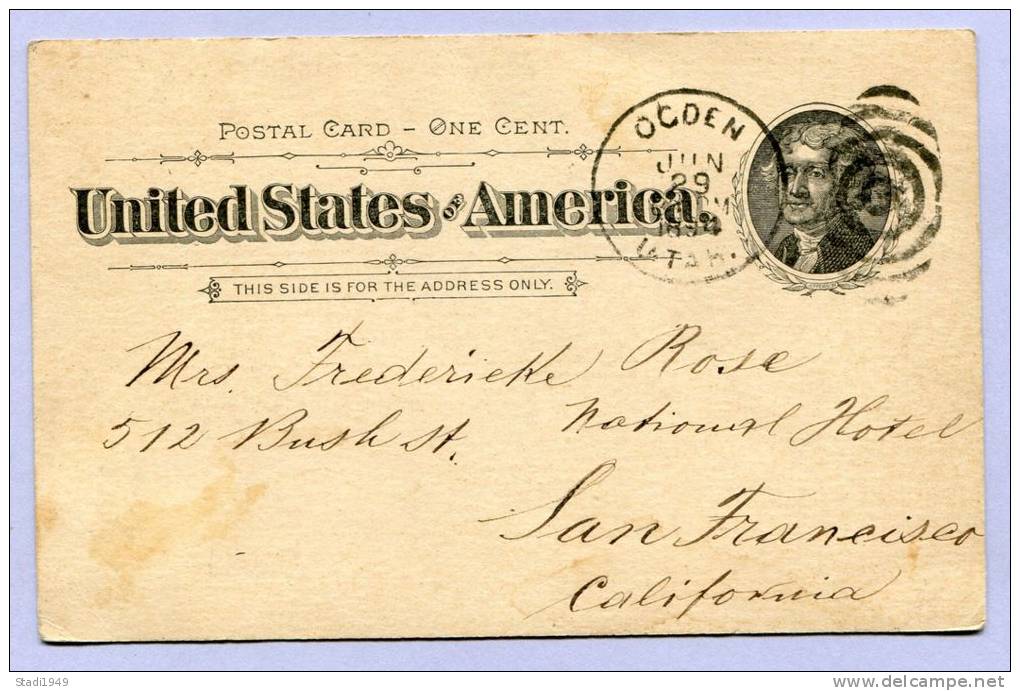 POSTAL CARD – ONE CENT.
United States OF America.
THIS SIDE IS FOR THE ADDRESS ONLY.
OGDEN
JUN
29
UTAH.
Mrs. Fredericke Rose
512 Bush st. National Hotel
San Francisco
California
Stadi1949
delcampe.net